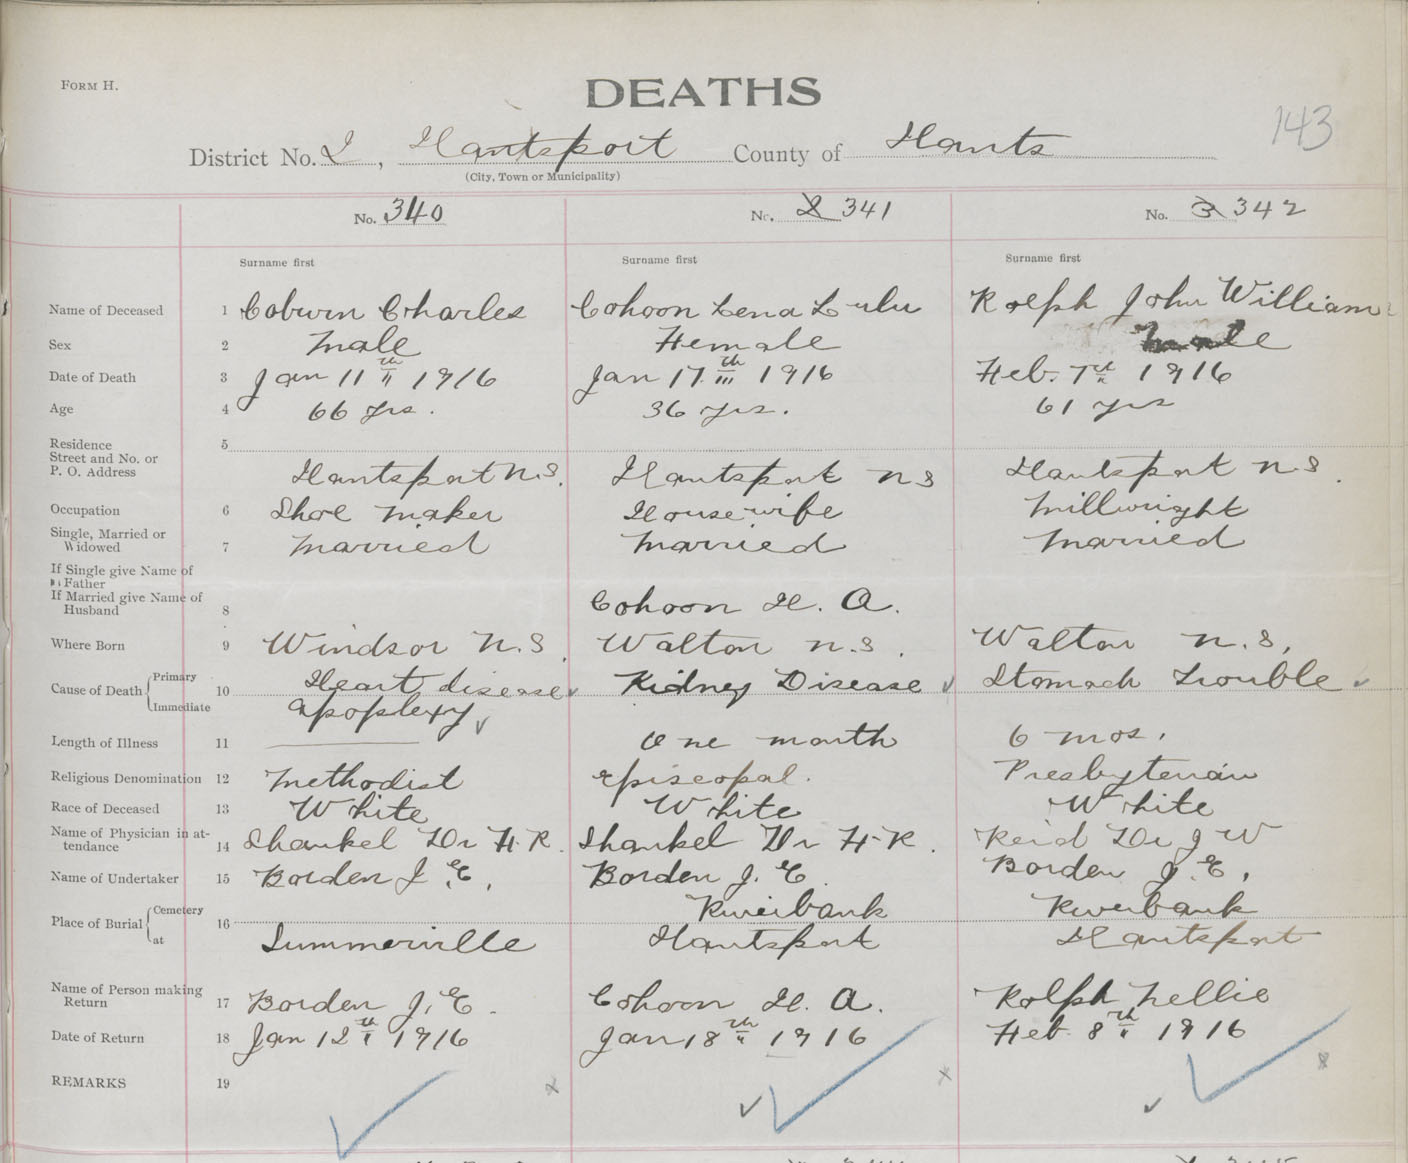 FORM H.
DEATHS
143
District No. 2, Hantsport County of Hants
(City, Town or Municipality)
No. 340 No. 2 341 No. 3 342
Surname first Surname first Surname first
Name of Deceased 1 Coburn Charles Cohoon Lena Lulu Rolph John William
Sex 2 Male Female Male
Date of Death 3 Jan 11th 1916 Jan 17th 1916 Feb. 7th 1916
Age 4 66 yrs. 36 yrs. 61 yrs
Residence 5
Street and No. or
P. O. Address Hantsport N.S. Hantsport N S Hantsport N.S.
Occupation 6 Shoe Maker Housewife Millwright
Single, Married or
Widowed 7 Married Married Married
If Single give Name of
Father
If Married give Name of
Husband 8 Cohoon H. A.
Where Born 9 Windsor N.S. Walton N.S. Walton N.S.
Cause of Death Primary 10 Heart disease Kidney Disease Stomach Trouble
Immediate apoplexy
Length of Illness 11 One month 6 mos.
Religious Denomination 12 Methodist Episcopal. Presbyterian
Race of Deceased 13 White White White
Name of Physician in at-
tendance 14 Shankel Dr H. R. Shankel Dr H. R. Reid Dr J W
Name of Undertaker 15 Borden J. E. Borden J. E. Borden J. E.
Place of Burial Cemetery 16 Riverbank Riverbank
at Summerville Hantsport Hantsport
Name of Person making
Return 17 Borden J. E. Cohoon H. A. Rolph Nellie
Date of Return 18 Jan 12th 1916 Jan 18th 1916 Feb. 8th 1916
REMARKS 19